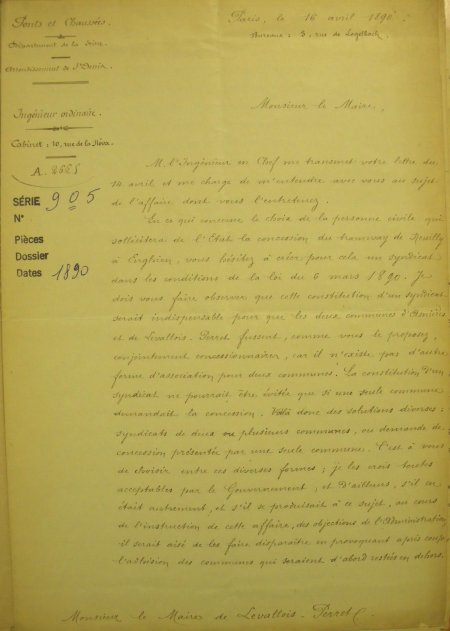 Ponts et Chaussées
Département de la Seine
Arrondissement de St Denis
Ingénieur ordinaire.
Cabinet : 10, rue de la Néva
A. 2525
SÉRIE
N° 905
Pièces
Dossier
Dates 1890
Paris, le 16 avril 1890.
Bureaux : 3, rue de Logelbach
Monsieur le Maire,
M. l'Ingénieur en Chef me transmet votre lettre du
14 avril et me charge de m'entendre avec vous au sujet
de l'affaire dont vous l'entretenez.
En ce qui concerne le choix de la personne civile qui
sollicitera de l'Etat la concession du tramway de Neuilly
à Enghien, vous hésitez à créer pour cela un syndicat
dans les conditions de la loi du 6 mars 1890. Je
dois vous faire observer que cette constitution d'un syndicat
serait indispensable pour que les deux communes d'Asnières
et de Levallois-Perret fussent, comme vous le proposez,
conjointement concessionnaires, car il n'existe pas d'autre
forme d'association pour deux communes. La constitution d'un
syndicat ne pourrait être évitée que si une seule commune
demandait la concession. Voilà donc des solutions diverses :
syndicats de deux ou plusieurs communes, ou demande de
concession présentée par une seule commune. C'est à vous
de choisir entre ces diverses formes ; je les crois toutes
acceptables par le Gouvernement, et d'ailleurs, s'il en
était autrement, et s'il se produisait à ce sujet, au cours
de l'instruction de cette affaire, des objections de l'Administration,
il serait aisé de les faire disparaître en provoquant après coup
l'adhésion des communes qui seraient d'abord restées en dehors.
Monsieur le Maire de Levallois-Perret.